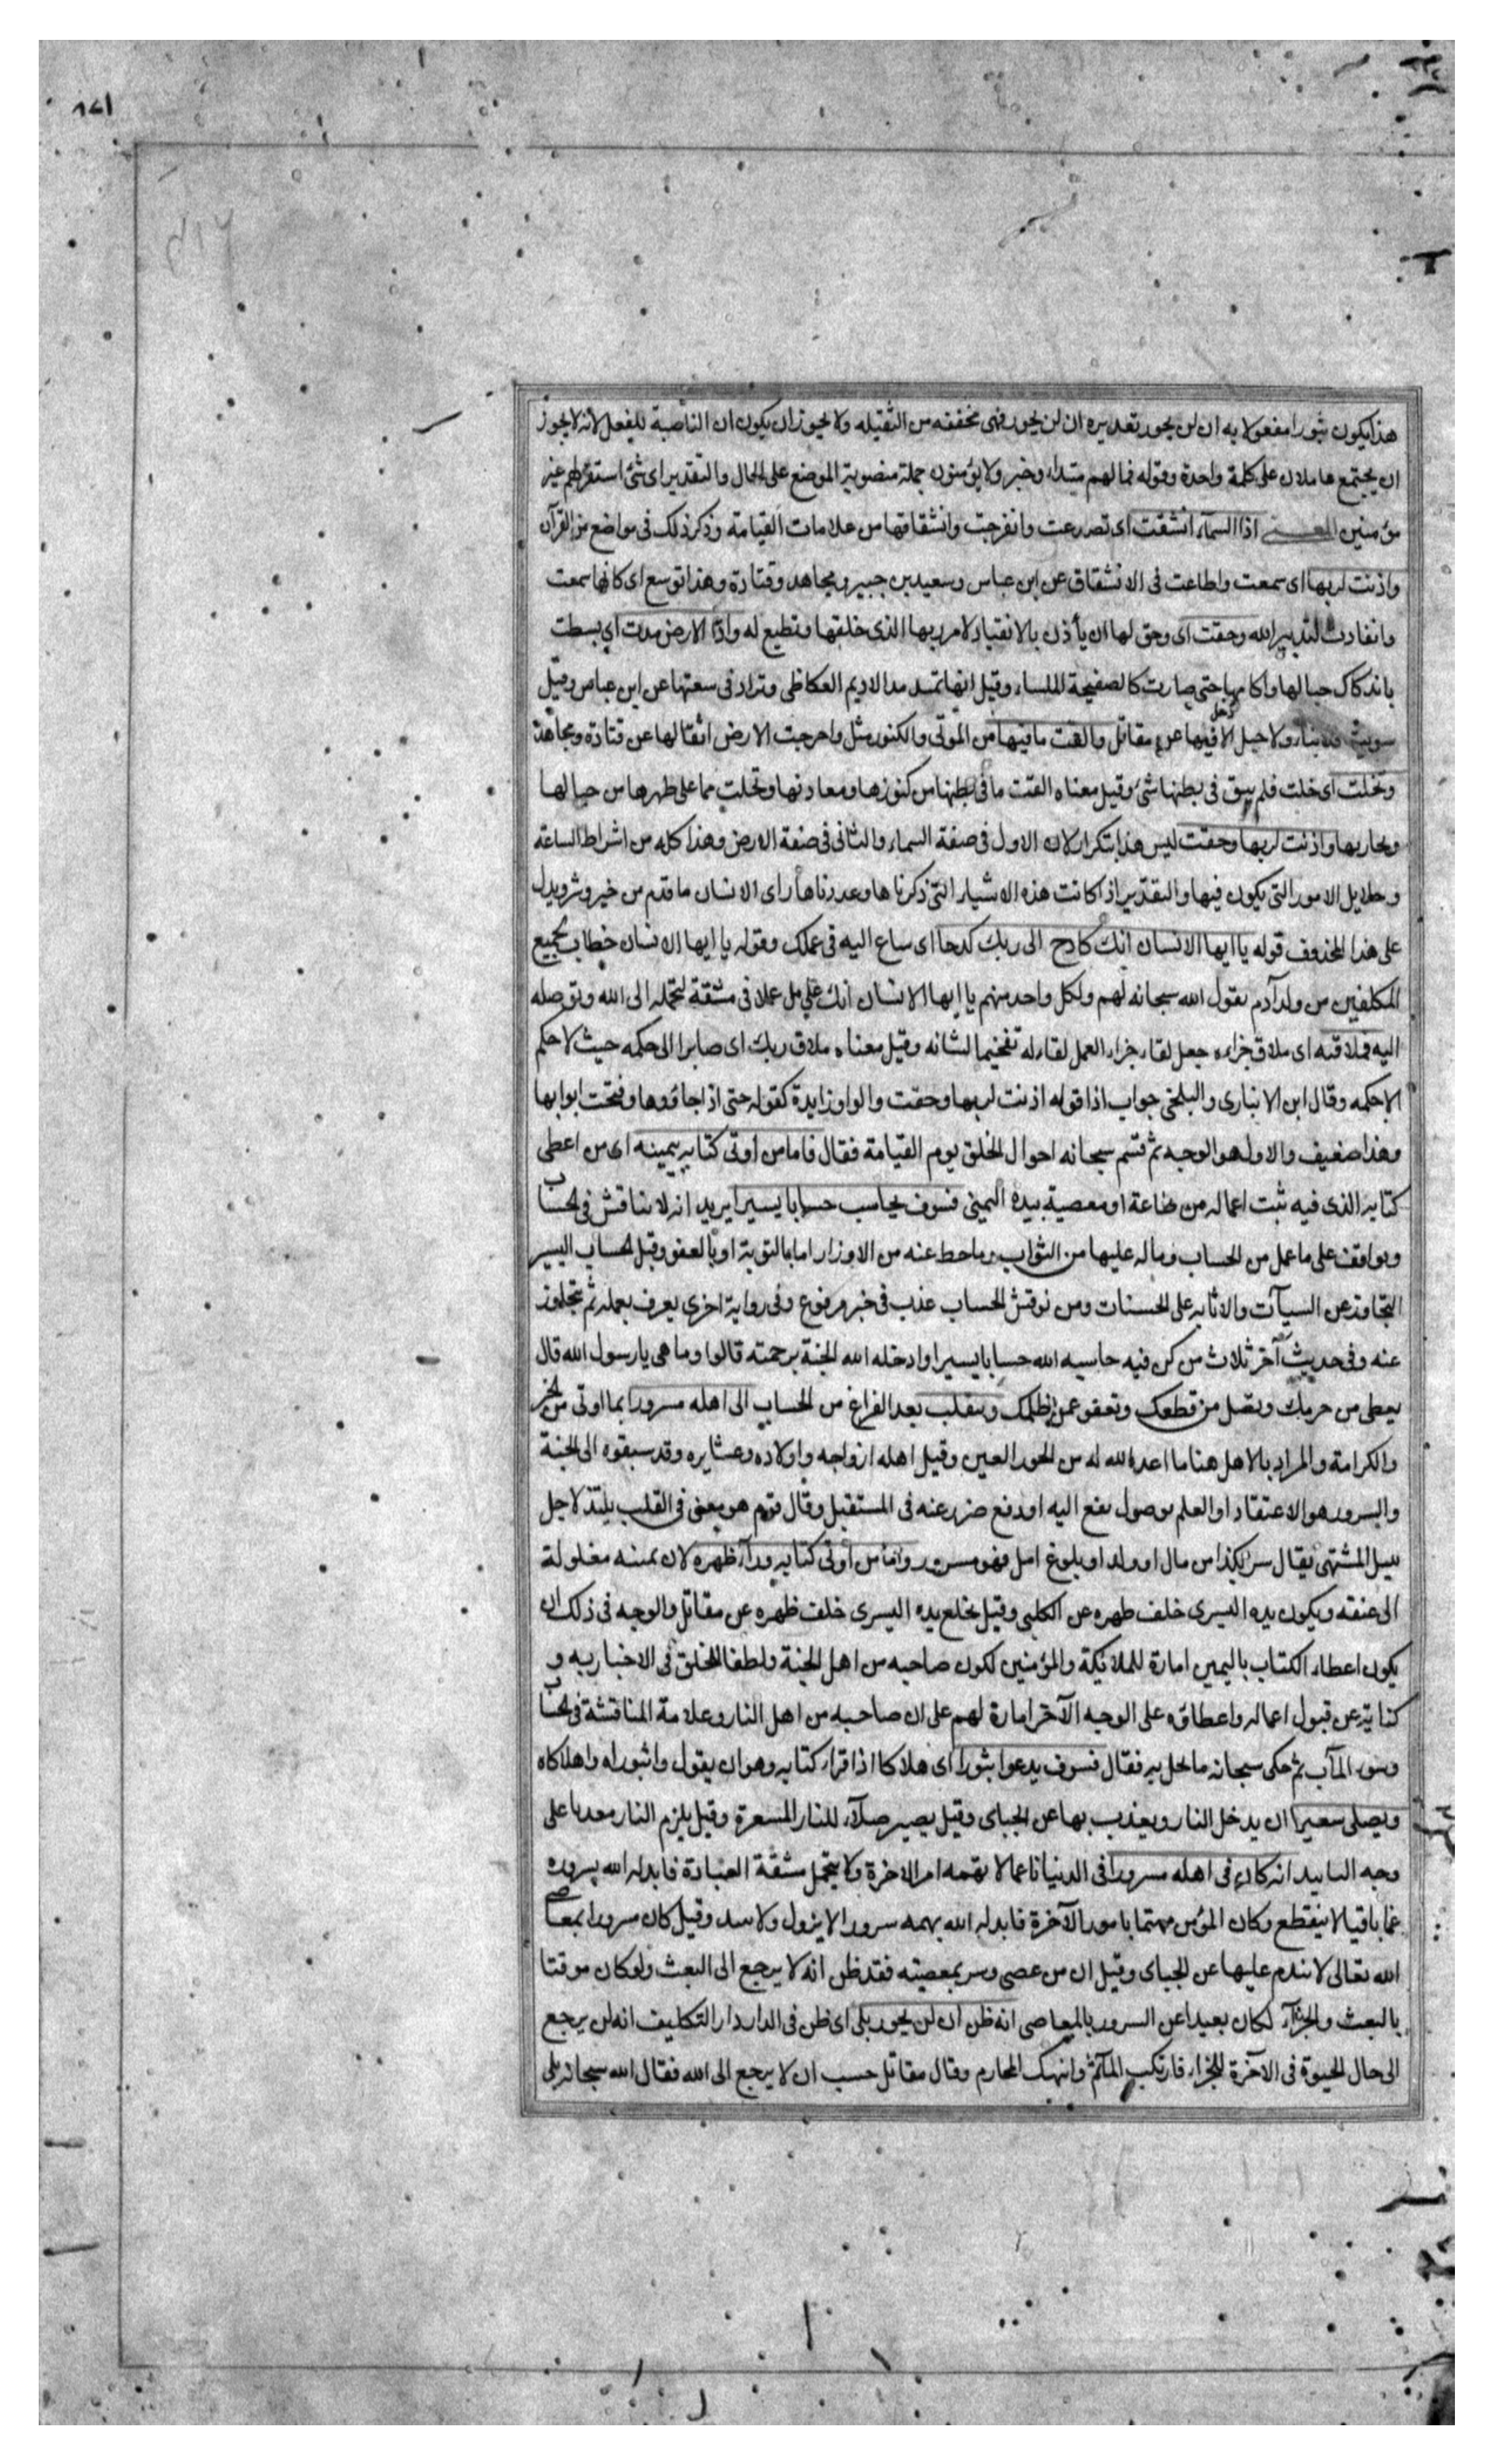 ١٧٨
هذا يكون ثبورا مفعولا به ان لن يحور تقديره ان لن يحور فهى مخففة من الثقيلة ولا يجوز ان يكون ان الناصبة للفعل لانه لا يجوز
ان يجتمع عاملان على كلمة واحدة وقوله فما لهم مبتداء وخبر ولا يؤمنون جملة منصوبة الموضع على الحال والتقدير اى شئ استقر لهم غير
مؤمنين المعنى اذا السماء انشقت اى تصدعت وانفرجت وانشقاقها من علامات القيامة وذكر ذلك فى مواضع من القرآن
واذنت لربها اى سمعت واطاعت فى الانشقاق عن ابن عباس وسعيد بن جبير ومجاهد وقتادة وهذا توسع اى كانها سمعت
وانقادت لتدبير الله وحقت اى وحق لها ان يأذن بالانقياد لامر ربها الذى خلقها وتطيع له واذا الارض مدت اى بسطت
باندكاك جبالها واكامها حتى صارت كالصفيحة الملساء وقيل انها تمد مد الاديم العكاظى وتزاد فى سعتها عن ابن عباس وقيل
سويت فلا بناء ولا جبل الا دخل فيها عن مقاتل والقت ما فيها من الموتى والكنوز مثل واخرجت الارض اثقالها عن قتادة ومجاهد
وتخلت اى خلت فلم يبق فى بطنها شئ وقيل معناه القت ما فى بطنها من كنوزها ومعادنها وتخلت مما على ظهرها من جبالها
وبحارها واذنت لربها وحقت ليس هذا بتكرار لان الاول فى صفة السماء والثانى فى صفة الارض وهذا كله من اشراط الساعة
وجلايل الامور التى يكون فيها والتقدير اذا كانت هذه الاشياء التى ذكرناها وعددناها راى الانسان ما قدم من خير وشر ويدل
على هذا المحذوف قوله يا ايها الانسان انك كادح الى ربك كدحا اى ساع اليه فى عملك وقوله يا ايها الانسان خطاب لجميع
المكلفين من ولد آدم يقول الله سبحانه لهم ولكل واحد منهم يا ايها الانسان انك عامل عملا فى مشقة لتحمله الى الله وتوصله
اليه فملاقيه اى ملاق جزاءه جعل لقاء جزاء العمل لقاء له تفخيما لشانه وقيل معناه ملاق ربك اى صايرا الى حكمه حيث لا حكم
الا حكمه وقال ابن الانبارى والبلخى جواب اذا قوله اذنت لربها وحقت والواو زايدة كقوله حتى اذا جاؤوها وفتحت ابوابها
وهذا ضعيف والاول هو الوجه ثم قسم سبحانه احوال الخلق يوم القيامة فقال فاما من اوتى كتابه بيمينه اى من اعطى
كتابه الذى فيه ثبت اعماله من طاعة او معصية بيده اليمنى فسوف يحاسب حسابا يسيرا يريد انه لا يناقش فى الحساب
ويواقف على ما عمل من الحساب وماله عليها من الثواب وما حط عنه من الاوزار اما بالتوبة او بالعفو وقيل الحساب اليسير
التجاوز عن السيآت والاثابه على الحسنات ومن نوقش الحساب عذب فى خبر مرفوع وفى رواية اخرى يعرف بعمله ثم يتجاوز
عنه وفى حديث آخر ثلاث من كن فيه حاسبه الله حسابا يسيرا وادخله الله الجنة برحمته قالوا وما هى يا رسول الله قال
يعطى من حرمك وتصل من قطعك وتعفو عمن ظلمك وينقلب بعد الفراغ من الحساب الى اهله مسرورا بما اوتى من الخير
والكرامة والمراد بالاهل هنا ما اعد الله له من الحور العين وقيل اهله ازواجه واولاده وعشايره وقد سبقوه الى الجنة
والسرور هو الاعتقاد او العلم بوصول نفع اليه او دفع ضرر عنه فى المستقبل وقال قوم هو معنى فى القلب يلتذ لاجل
نيل المشتهى يقال سر بكذا من مال او ولد او بلوغ امل فهو مسرور واما من اوتى كتابه وراء ظهره لان يمينه مغلولة
الى عنقه ويكون يده اليسرى خلف ظهره عن الكلبى وقيل يخلع يده اليسرى خلف ظهره عن مقاتل والوجه فى ذلك ان
يكون اعطاء الكتاب باليمين امارة للملائكة والمؤمنين لكون صاحبه من اهل الجنة ولطفا للخلق فى الاخبار به و
كناية عن قبول اعماله واعطاؤه على الوجه الآخر امارة لهم على ان صاحبه من اهل النار وعلامة المناقشة فى الحساب
وسوء المآب ثم حكى سبحانه ما يحل به فقال فسوف يدعوا ثبورا اى هلاكا اذا قرا كتابه وهو ان يقول واثبوراه واهلاكاه
ويصلى سعيرا ان يدخل النار ويعذب بها عن الجباى وقيل يصير صلآء للنار المسعرة وقيل يلزم النار معذبا على
وجه التابيد انه كان فى اهله مسرورا فى الدنيا ناعما لا يهمه امر الاخرة ولا يتحمل مشقة العبادة فابدله الله بسروره
غما باقيا لا ينقطع وكان المؤمن مهتما بامور الآخرة فابدله الله بهمه سرورا لا يزول ولا يبيد وقيل كان مسرورا بمعاصى
الله تعالى لا يندم عليها عن الجباى وقيل ان من عصى وسر بمعصيته فقد ظن انه لا يرجع الى البعث ولو كان موقنا
بالبعث والجزآء لكان بعيدا عن السرور بالمعاصى انه ظن ان لن يحور بلى اى ظن فى الدار دار التكليف انه لن يرجع
الى حال الحيوة فى الآخرة للجزاء فارتكب المآثم وانهتك المحارم وقال مقاتل حسب ان لا يرجع الى الله فقال الله سبحانه بلى